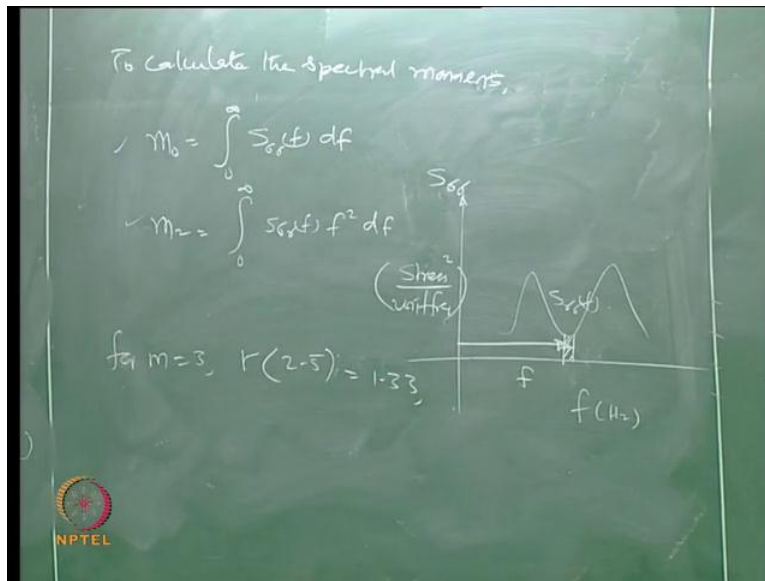 To calculate the spectral moments,
✓ m₀ = ∫₀^∞ Sσσ(f) df
✓ m₂ = ∫₀^∞ Sσσ(f) f² df
Sσσ
(Stress²/unit frq)
Sσσ(f)
for m=3, Γ(2.5) = 1.33,
f
f(Hz)
)
NPTEL